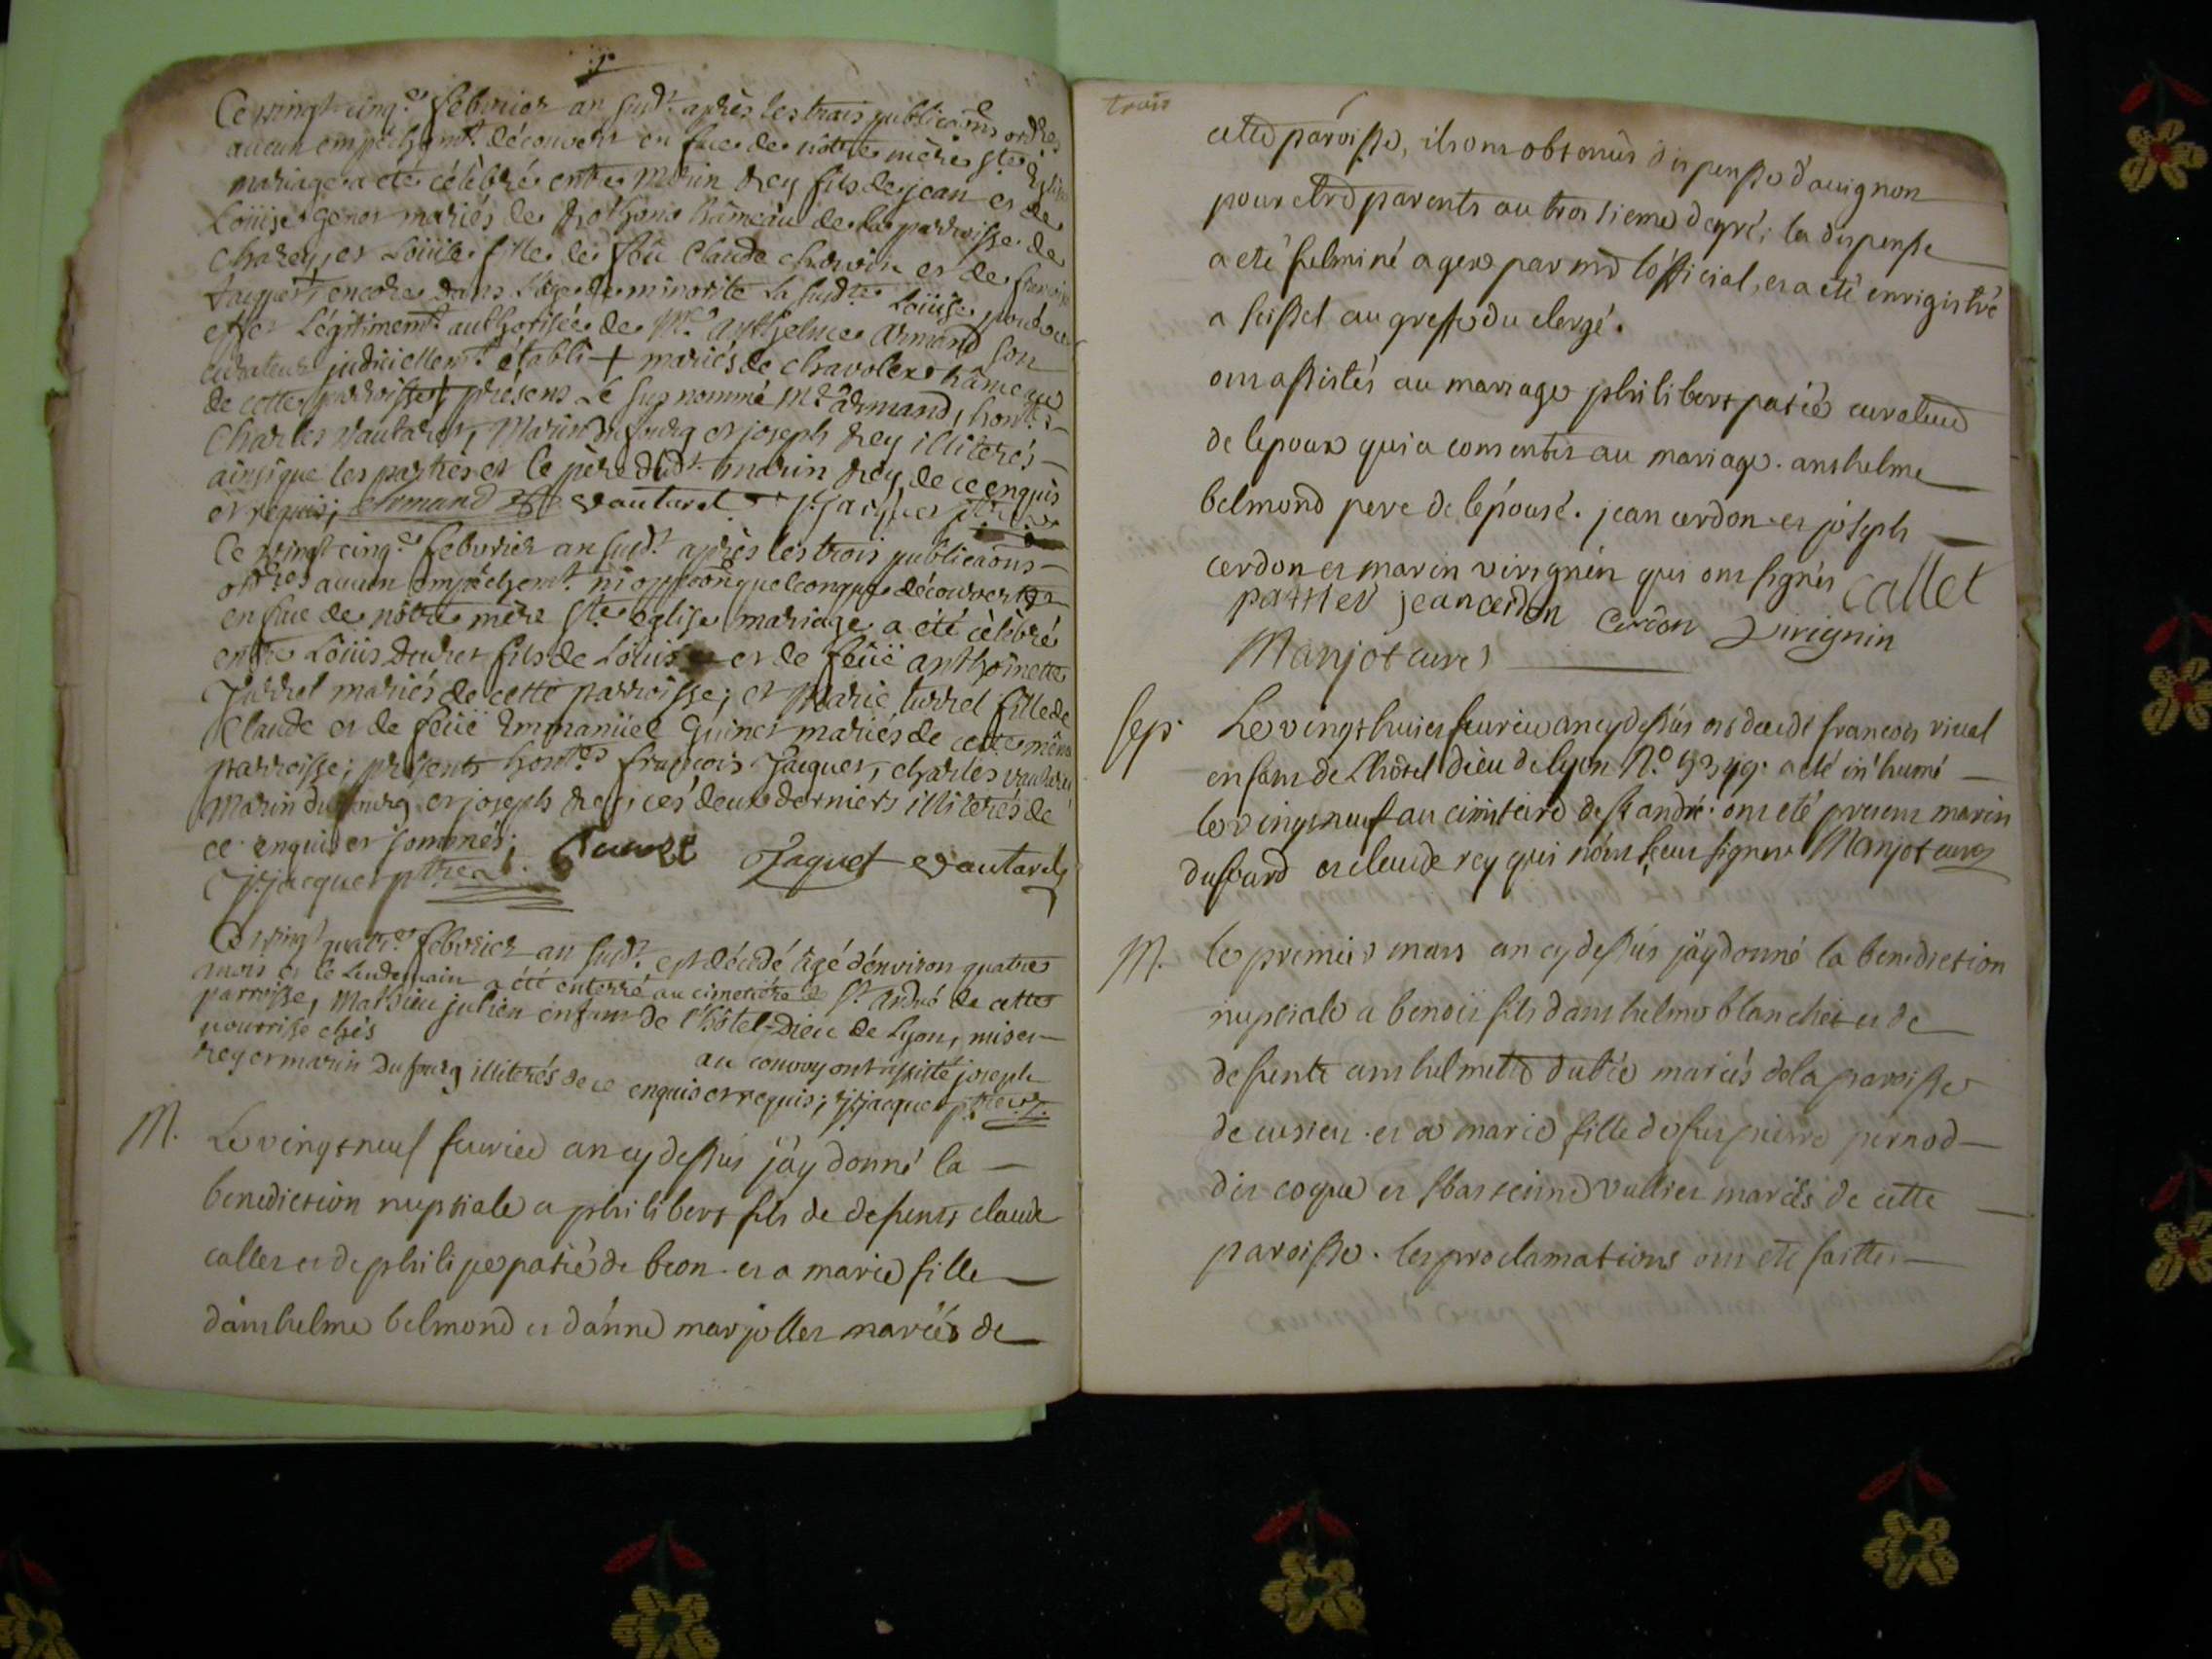 Ce vingt cinq.e febvrier an susd.t après les trois publicaõns ord.res
aucun empêchem.t découvert en face de nôtre mère s.te Eglise
mariage a été célébré entre Marin Rey fils de jean et de
Loüise genet mariés de hâmeau de la parroisse de
et Loüise fille de feu Claude et de
jacquet encore dans l'âge de minorité la susd.te Loüise pour ce
effet Légitimem.t authorisée de M.re Anthelme Armand son
curateur judiciellem.t établi + mariés de chavolex hâmeau
de cette parroisse, présens Le susnommé M.re armand, hon.bles
Charles Vautaret, Marin Dufourg et joseph Rey illiterés
ainsi que les parties et le père dud.t marin Rey de ce enquis
et requis; Armand vautaret J. jacquet p.tre
Ce vingt cinq.e febvrier an susd.t après les trois publicaõns
ord.res aucun empêchem.t ni oppõõn quelconque découverte
en face de nôtre mère s.te eglise mariage a été célébré
entre Loüis Ducret fils de Loüis et de feüe anthoinette
Turrel mariés de cette parroisse; et Marie turrel fille de
Claude et de feüe Emmanüel Guinet mariés de cette même
parroisse; présents hon.bles françois Jacquet, charles vautaret
Marin dufourg et joseph Rey, ces deux derniers illiterés de
ce enquis et sommés;
J. jacquet p.tre Jaquet vautaret
Ce vingt quatr.e febvrier an susd.t est décédé âgé d'environ quatre
mois et le Lendemain a été enterré au cimetière de s.t André de cette
parroisse, Mathieu julien enfant de l'hôtel-Dieu de Lyon, mis en
nourrisse chés au convoy ont assisté joseph
Rey et marin Dufourg illiterés de ce enquis et requis; J. jacquet p.tre
M. Le vingt neuf feurier an cy dessus j'ay donné la
benediction nuptiale a philibert fils de defunts claude
callet et de philipe patié de beon. et a marie fille
d'anthelme belmond et d'anne marjollet mariés de
trois
cette paroisse, ils ont obtenus dispensse d'auignon
pour etre parents au troisieme degré; la dispensse
a eté fulminé a gex par mr l'official, et a eté enrigistré
a seissel au greffe du clergé.
ont assistés au mariage philibert patié curateur
de lepoux qui a consenti au mariage. anthelme
belmond pere de l'épouse. jean cerdon et joseph
cerdon et marin virignin qui ont signés callet
pattiet jean cerdon cerdon virignin
Manjot curé
sep. Le vingt huict feurier an cy dessus est decedé francois viual
enfant de Lhôtel Dieu de lyon N.o a eté in'humé
le vingt neuf au cimiteire de st andré. ont eté present marin
dufourd et claude rey qui n'ont sceus signer Manjot curé
M. le premier mars an cy dessus j'ay donné la benediction
nuptiale a benoit fils danthelme blanchet et de
defunte anthelmette dutié mariés de la paroisse
de cusieu. et a marie fille de feu pierre pernod
dit coque et vullier mariés de cette
paroisse. les proclamations ont eté faittes